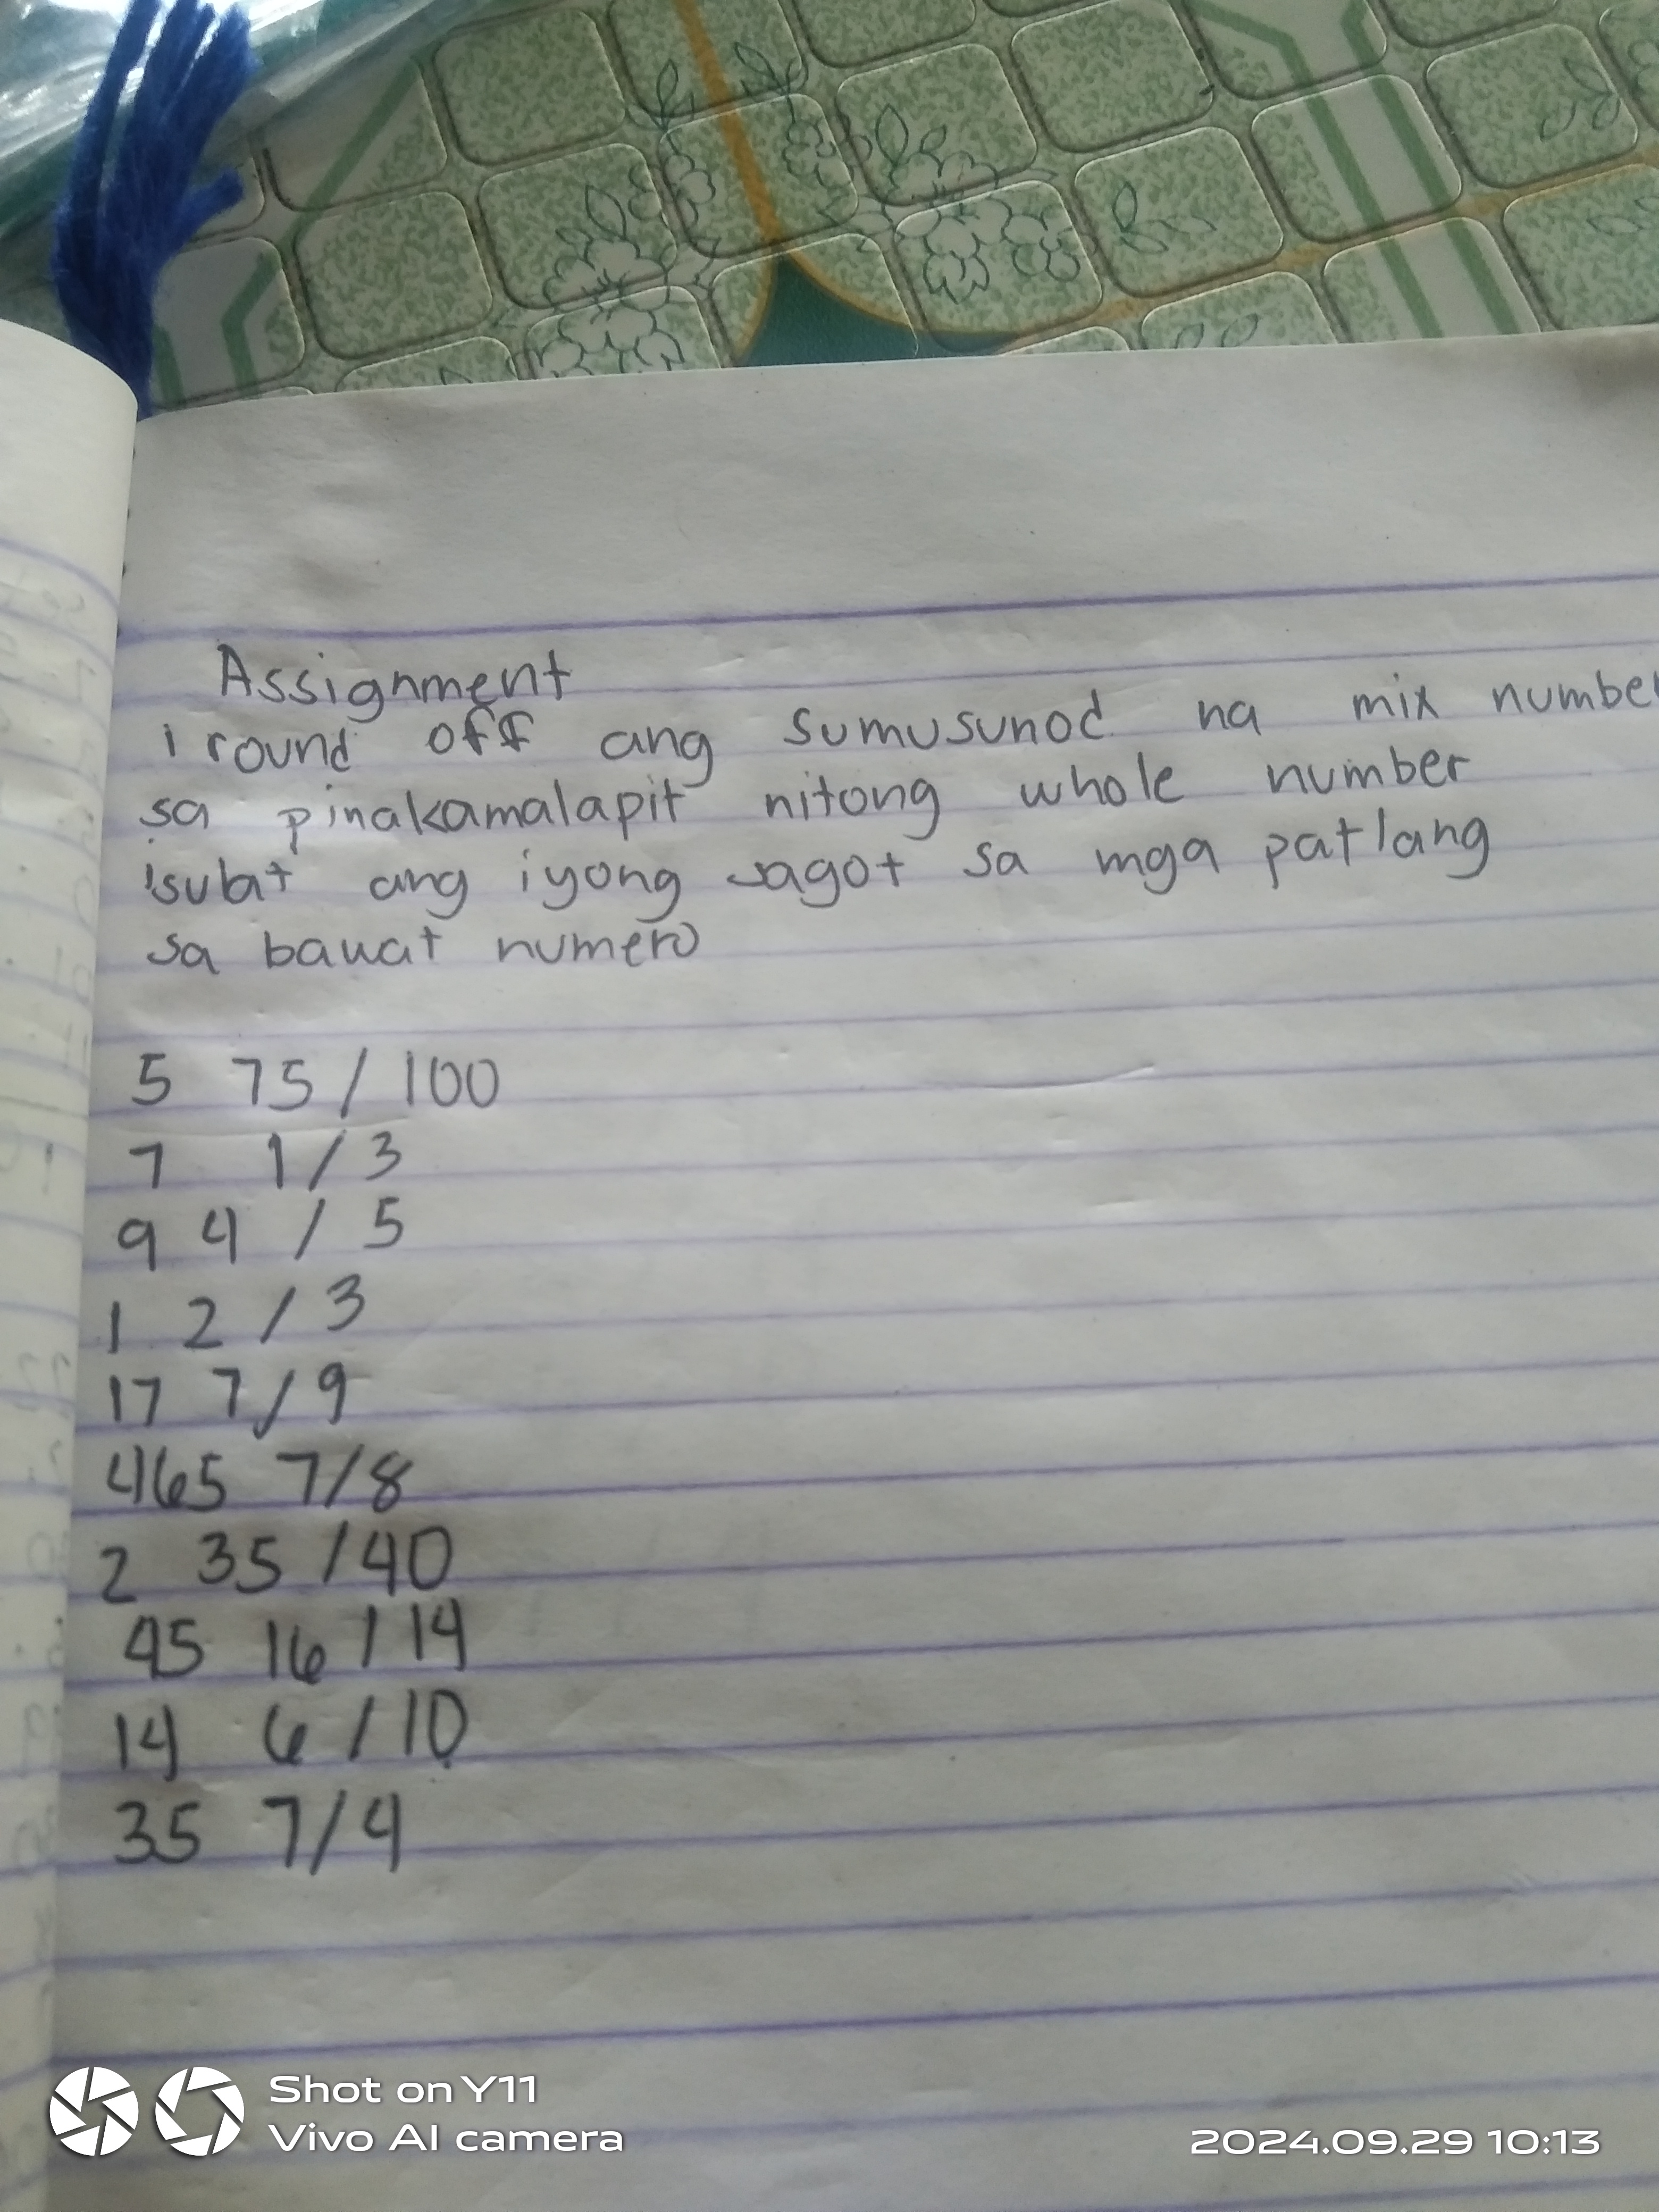 Assignment
i round off ang sumusunod na mix number
sa pinakamalapit nitong whole number
isulat ang iyong sagot sa mga patlang
sa bawat numero
5 75/100
7 1/3
9 4/5
1 2/3
17 7/9
465 7/8
2 35/40
45 16/14
14 6/10
35 7/4
Shot on Y11
Vivo AI camera
2024.09.29 10:13